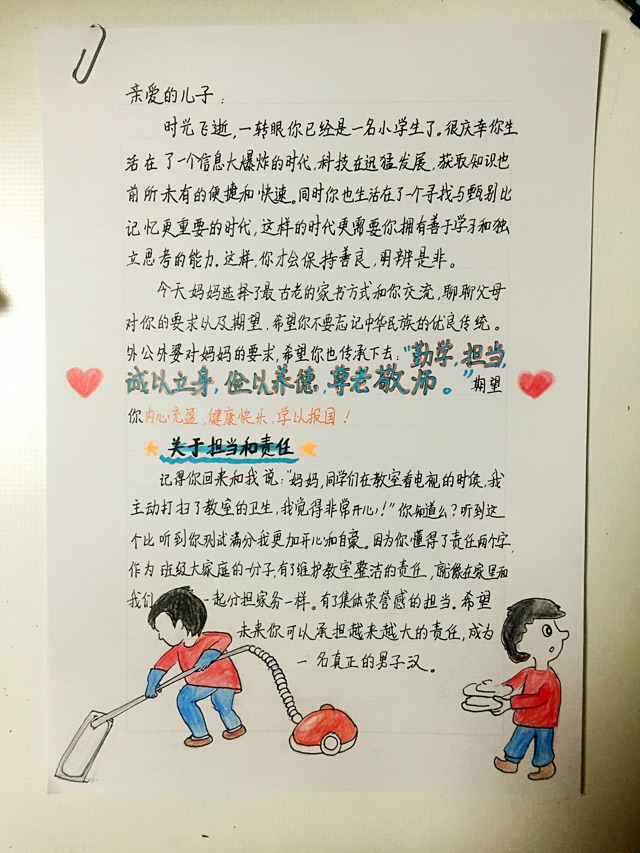 亲爱的儿子：
时光飞逝，一转眼你已经是一名小学生了。很庆幸你生
活在了一个信息大爆炸的时代，科技在迅猛发展，获取知识也
前所未有的便捷和快速。同时你也生活在了一个寻找与甄别比
记忆更重要的时代，这样的时代更需要你拥有善于学习和独
立思考的能力。这样，你才会保持善良，明辨是非。
今天妈妈选择了最古老的家书方式和你交流，聊聊父母
对你的要求以及期望，希望你不要忘记中华民族的优良传统。
外公外婆对妈妈的要求，希望你也传承下去：“勤学，担当，
诚以立身，俭以养德，尊老敬师。”期望
你内心充盈、健康快乐，学以报国！
关于担当和责任
记得你回来和我说：“妈妈，同学们在教室看电视的时候，我
主动打扫了教室的卫生，我觉得非常开心！”你知道么？听到这
个比听到你测试满分我更加开心和自豪。因为你懂得了责任两个字，
作为班级大家庭的一分子，有了维护教室整洁的责任，就像在家里和
我们一起分担家务一样。有了集体荣誉感的担当。希望
未来你可以承担越来越大的责任，成为
一名真正的男子汉。